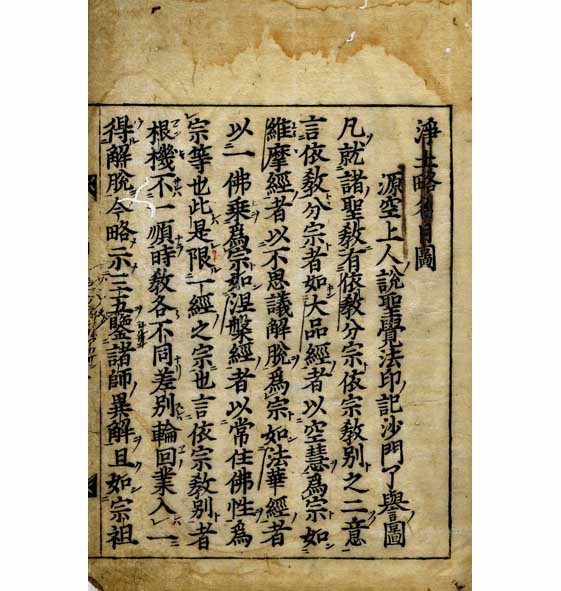 淨土略名目圖
源空上人說聖覺法印記沙門了譽圖
凡就諸聖教有依教分宗依宗教別之二意
言依教分宗者如大品經者以空慧爲宗如
維摩經者以不思議解脫爲宗如法華經者
以一佛乘爲宗如涅槃經者以常住佛性爲
宗等也此是限一經之宗也言依宗教別者
根機不一順時教各不同差別輪回業入一
得解脫今略示三五鑒諸師異解且如宗祖